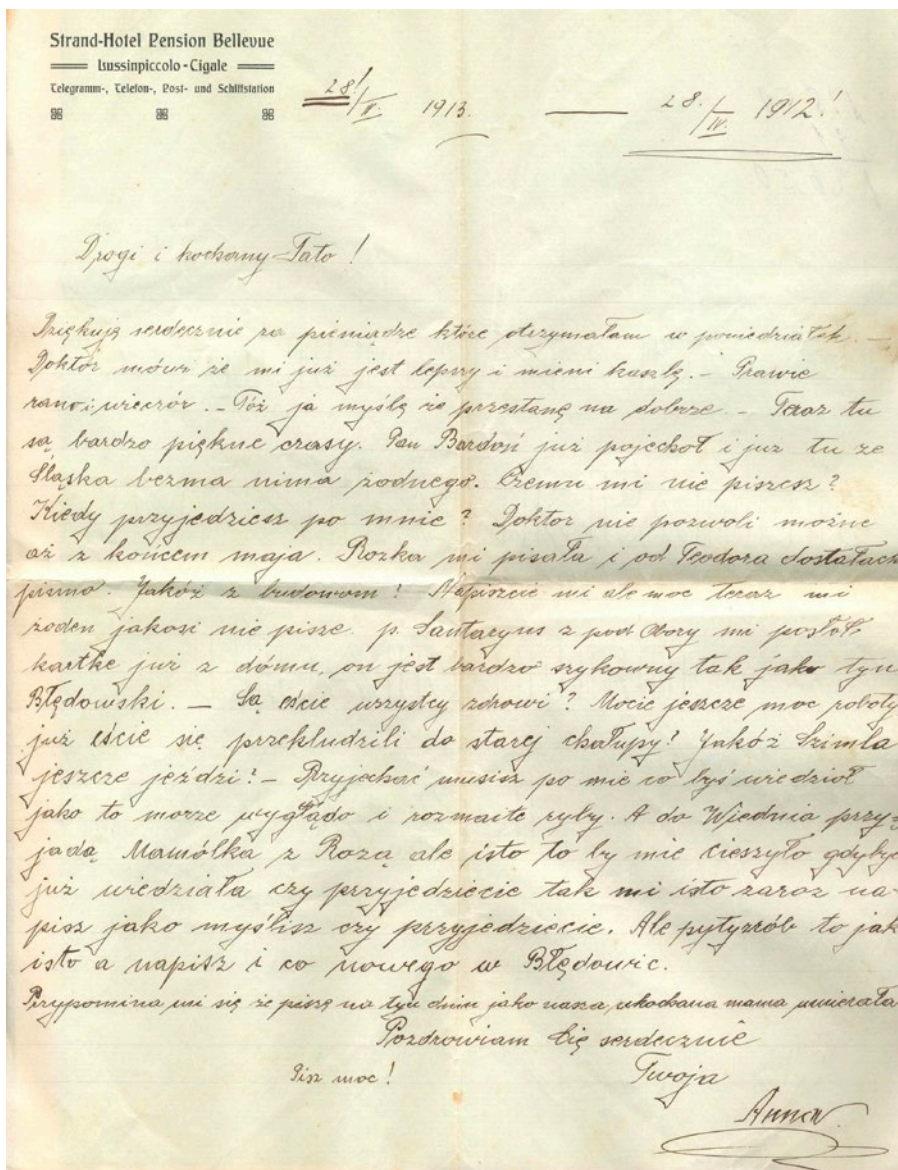 Strand-Hotel Pension Bellevue
Lussinpiccolo-Cigale
Telegramm-, Telefon-, Post- und Schiffstation
28!/V. 1913. — 28./IV. 1912!
Drogi i kochany Tato!
Dziękuję serdecznie za pieniądze które otrzymałam w poniedziałek. —
Doktór mówi że mi już jest lepszy i mieni kaszlę. — Prawie
rano i wieczór. — Tóż ja myślę że przestanę na dobrze. — Teraz tu
są bardzo piękne czasy. Pan Bardoń już pojechoł i już tu ze
Śląska bezma nima żodnego. Czemu mi nie piszesz?
Kiedy przyjedziesz po mnie? Doktor nie pozwoli możne
aż z końcem maja. Rozka mi pisała i od Teodora dostałach
pismo. Jakóż z budowom? Napiszcie mi ale moc teraz mi
żoden jakosi nie pisze. p. Santaryus z pod Obory mi posłoł
kartke już z dómu, on jest bardzo szykowny tak jako tyn
Błędowski. — Są eście wszyscy zdrowi? Mocie jeszcze moc roboty
już eście się przekludzili do starej chałupy? Jakóż Szimla
jeszcze jeździ? — Przyjechać musisz po mie co byś wiedzioł
jako to morze wyglądo i rozmaite ryby. A do Wiednia przy=
jadą Mamólka z Rozą ale isto to by mie cieszyło gdybych
już wiedziała czy przyjedziecie tak mi isto zaroz na-
pisz jako myślisz czy przyjedziecie. Ale pytyzrób to jak
isto a napisz i co nowego w Błędowic.
Przypomina mi się że piszę na tyn dniu jako nasza ukochana mama umierała
Pozdrowiam Cię serdecznie
Pisz moc! Twoja
Anna